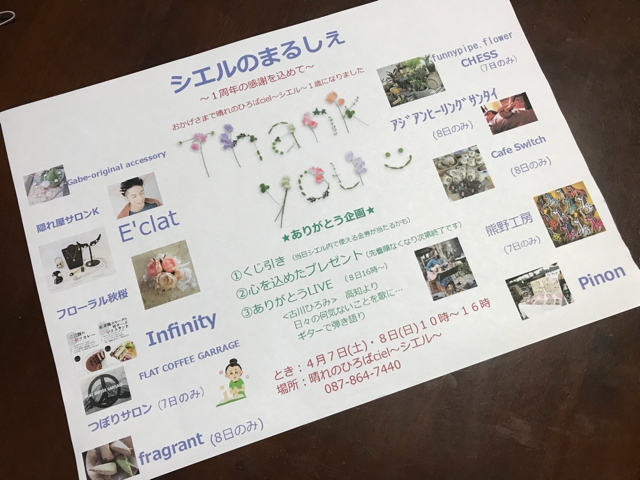 シエルのまるしぇ
～１周年の感謝を込めて～
おかげさまで晴れのひろばciel～シエル～１歳になりました
Thank
you
Gabe-original accessory
隠れ屋サロンK
E'clat
フローラル秋桜
Infinity
FLAT COFFEE GARRAGE
つぼりサロン (7日のみ)
fragrant (8日のみ)
★ありがとう企画★
①くじ引き (当日シエル内で使える金券が当たるかも)
②心を込めたプレゼント (先着順なくなり次第終了です)
③ありがとうLIVE (８日16時～)
<古川ひろみ> 高知より
日々の何気ないことを歌に…
ギターで弾き語り
とき：４月７日(土)・８日(日)１０時～１６時
場所：晴れのひろばciel～シエル～
087-864-7440
funnypipe.flower
CHESS
(7日のみ)
ｱｼﾞｱﾝﾋｰﾘﾝｸﾞサンタイ
(8日のみ)
Cafe Switch
(8日のみ)
熊野工房
(7日のみ)
Pinon